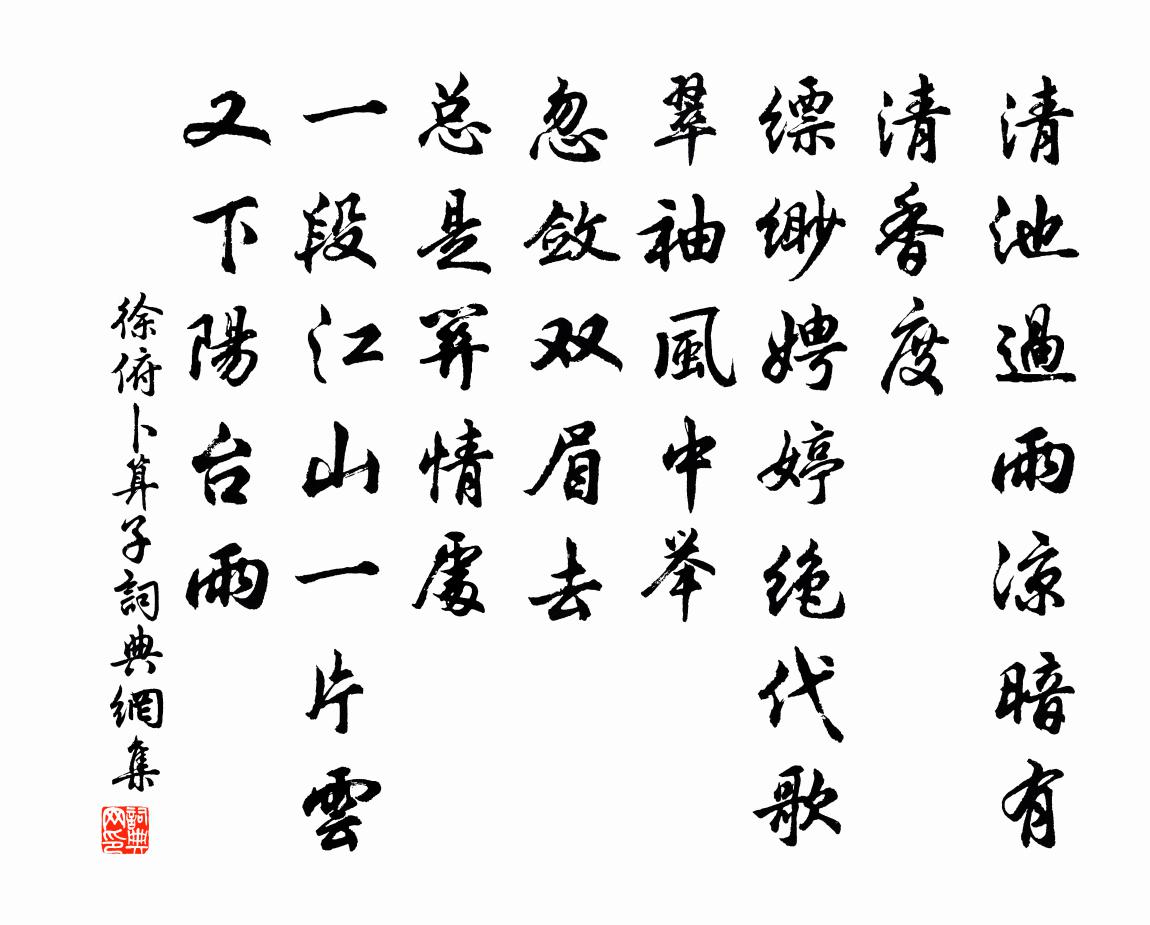 清池過雨涼暗有
清香度
縹缈娉婷绝代歌
翠袖風中举
忽斂双眉去
总是関情處
一段江山一片雲
又下陽台雨
徐俯卜算子詞典網集
詞典网印